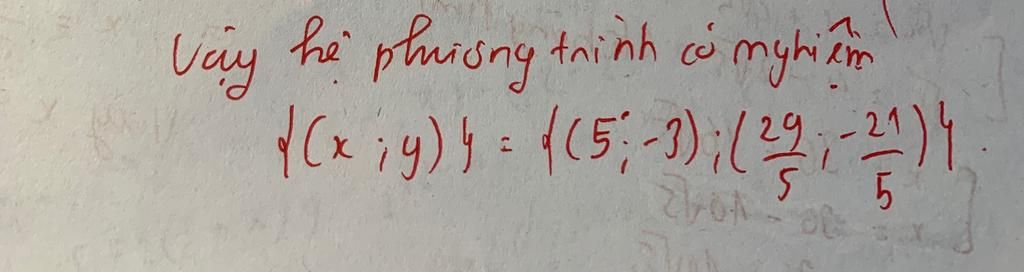 Vậy hệ phương trình có nghiệm
{(x ; y)} = {(5 ; -3) ; (29/5 ; -21/5)}.